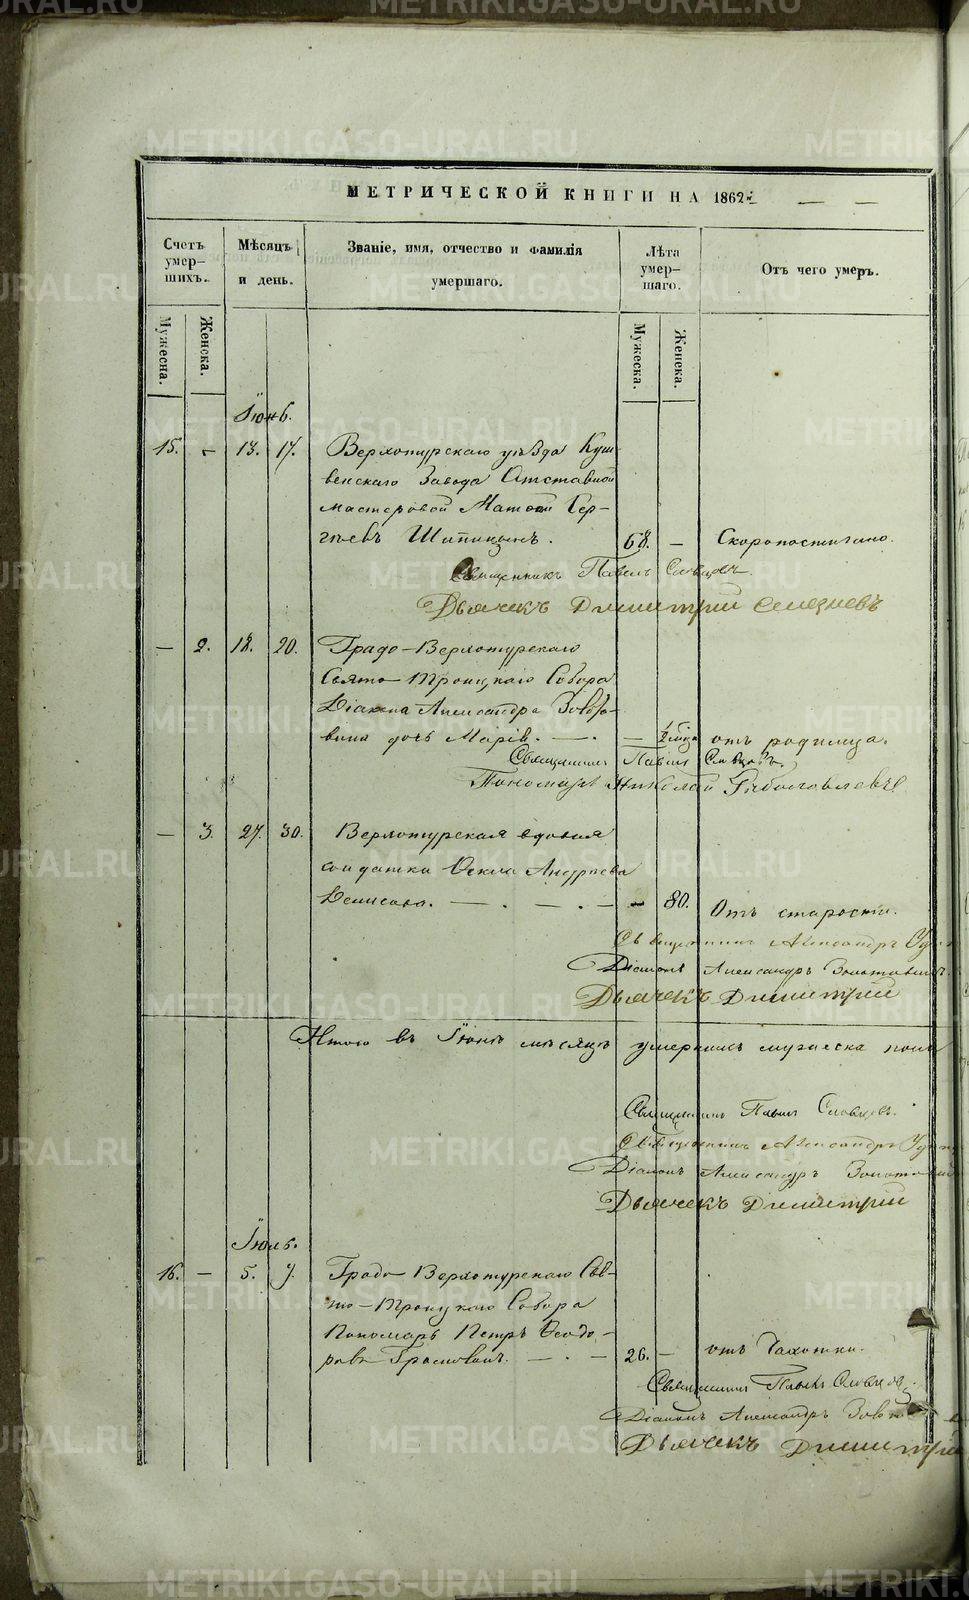 МЕТРИЧЕСКОЙ КНИГИ НА 1862
Счетъ умер-шихъ.
Мѣсяцъ и день.
Званіе, имя, отчество и фамилія умершаго.
Лѣта умер-шаго.
Отъ чего умеръ.
Мужеска.
Женска.
Мужеска.
Женска.
Іюнь.
15. – 13. 17. Верхотурскаго уѣзда Куш-
венскаго Завода Отставной
мастеровой Матвѣй Сер-
гѣевъ Шипицынъ. 68. – Скоропостижно.
Священникъ Павелъ Словцовъ.
Дьячекъ Димитрій Селезневъ
– 2. 18. 20. Градо-Верхотурскаго
Свято-Троицкаго Собора
Діакона Александра
дочь Марія. – отъ родимца.
Священникъ Павелъ Словцовъ.
Пономарь Николай
– 3. 27. 30. Верхотурская вдовая
солдатка Ѳекла Андреева
Денисова. – 80. Отъ старости.
Священникъ Александръ
Діаконъ Александръ
Дьячекъ Димитрій
Итого въ Іюнѣ мѣсяцѣ умершихъ мужеска пола
Священникъ Павелъ Словцовъ.
Священникъ Александръ
Діаконъ Александръ
Дьячекъ Димитрій
Іюль.
16. – 5. 7. Градо-Верхотурскаго Свя-
то-Троицкаго Собора
Пономарь Петръ Ѳеодо-
ровъ 26. – отъ Чахотки.
Священникъ Павелъ Словцовъ.
Діаконъ Александръ
Дьячекъ Димитрій
METRIKI.GASO-URAL.RU